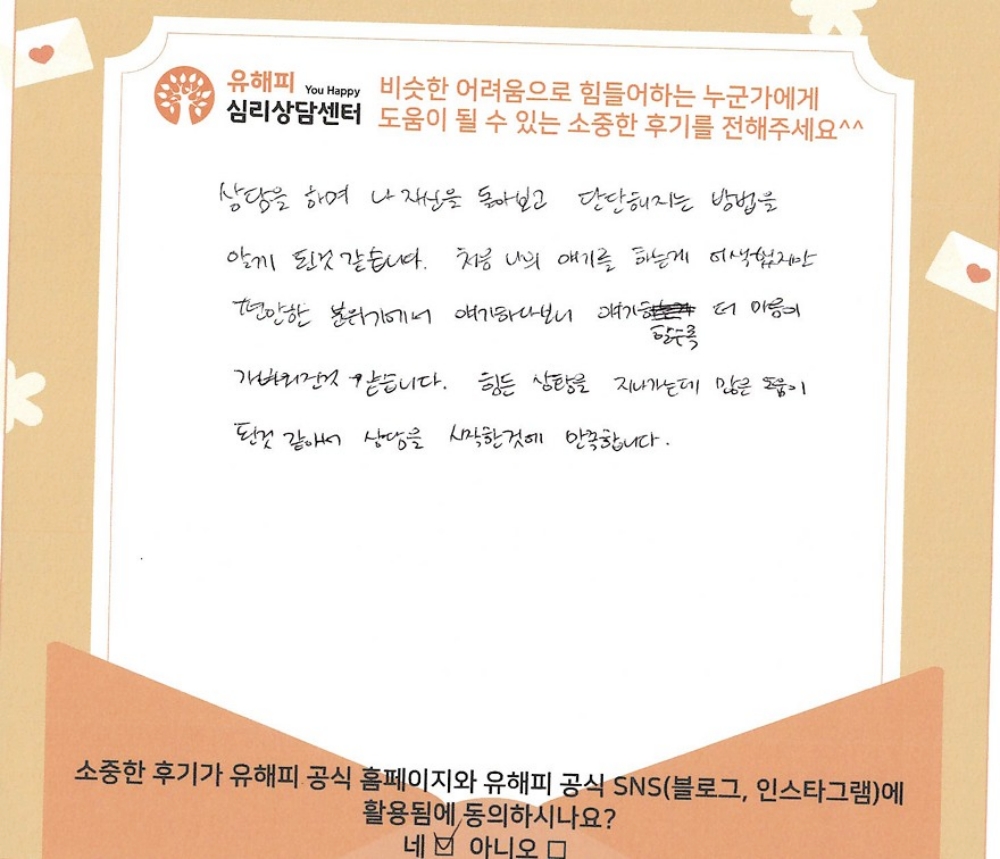 유해피 You Happy
심리상담센터
비슷한 어려움으로 힘들어하는 누군가에게
도움이 될 수 있는 소중한 후기를 전해주세요^^
상담을 하며 나 자신을 돌아보고 단단해지는 방법을
알게 된것 같습니다. 처음 나의 얘기를 하는게 어색했지만
편안한 분위기에서 얘기하다보니 얘기할수록 더 마음이
가벼워진것 같습니다. 힘든 상황을 지나가는데 많은 도움이
된것 같아서 상담을 시작한것에 만족합니다.
소중한 후기가 유해피 공식 홈페이지와 유해피 공식 SNS(블로그, 인스타그램)에
활용됨에 동의하시나요?
네 ☑ 아니오 ☐